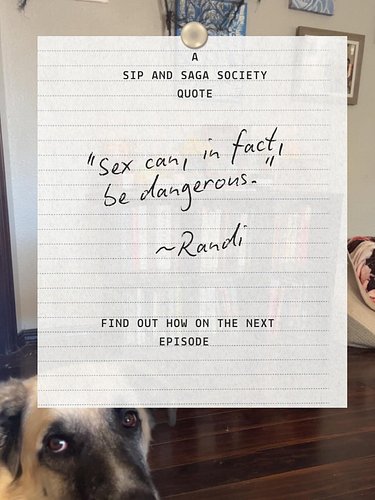 A
SIP AND SAGA SOCIETY
QUOTE
"Sex can, in fact,
be dangerous."
~Randi
FIND OUT HOW ON THE NEXT
EPISODE